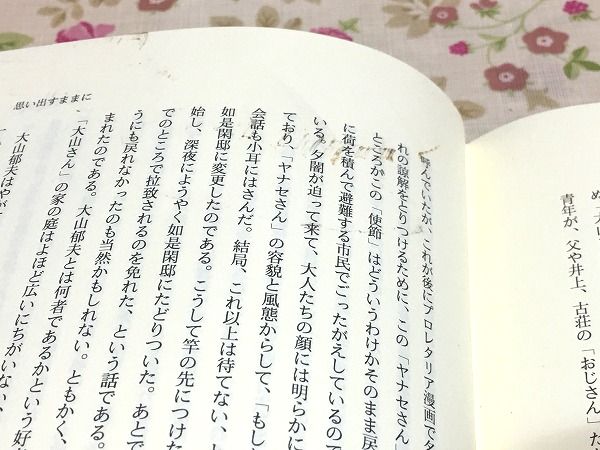 青年が、父や井上、古荘の「おじさん」だ
呼んでいたが、これが後にプロレタリア漫画で
れの諒解をとりつけるために、この「ヤナセさん」
ところがこの「使節」はどういうわけかそのまま戻
に荷を積んで避難する市民でごったがえしているので
いる。夕闇が迫って来て、大人たちの顔には明らかに
ており、「ヤナセさん」の容貌と風態からして、「もし
会話も小耳にはさんだ。結局、これ以上は待てない、
如是閑邸に変更したのである。こうして竿の先につけた
始し、深夜にようやく如是閑邸にたどりついた。あとで
でのところで拉致されるのを免れた、という話である。
うにも戻れなかったのも当然かもしれない。ともかく、
まれたのである。大山郁夫とは何者であるかという好
「大山さん」の家の庭はよほど広いにちがいない、
大山郁夫はやが
思い出すままに